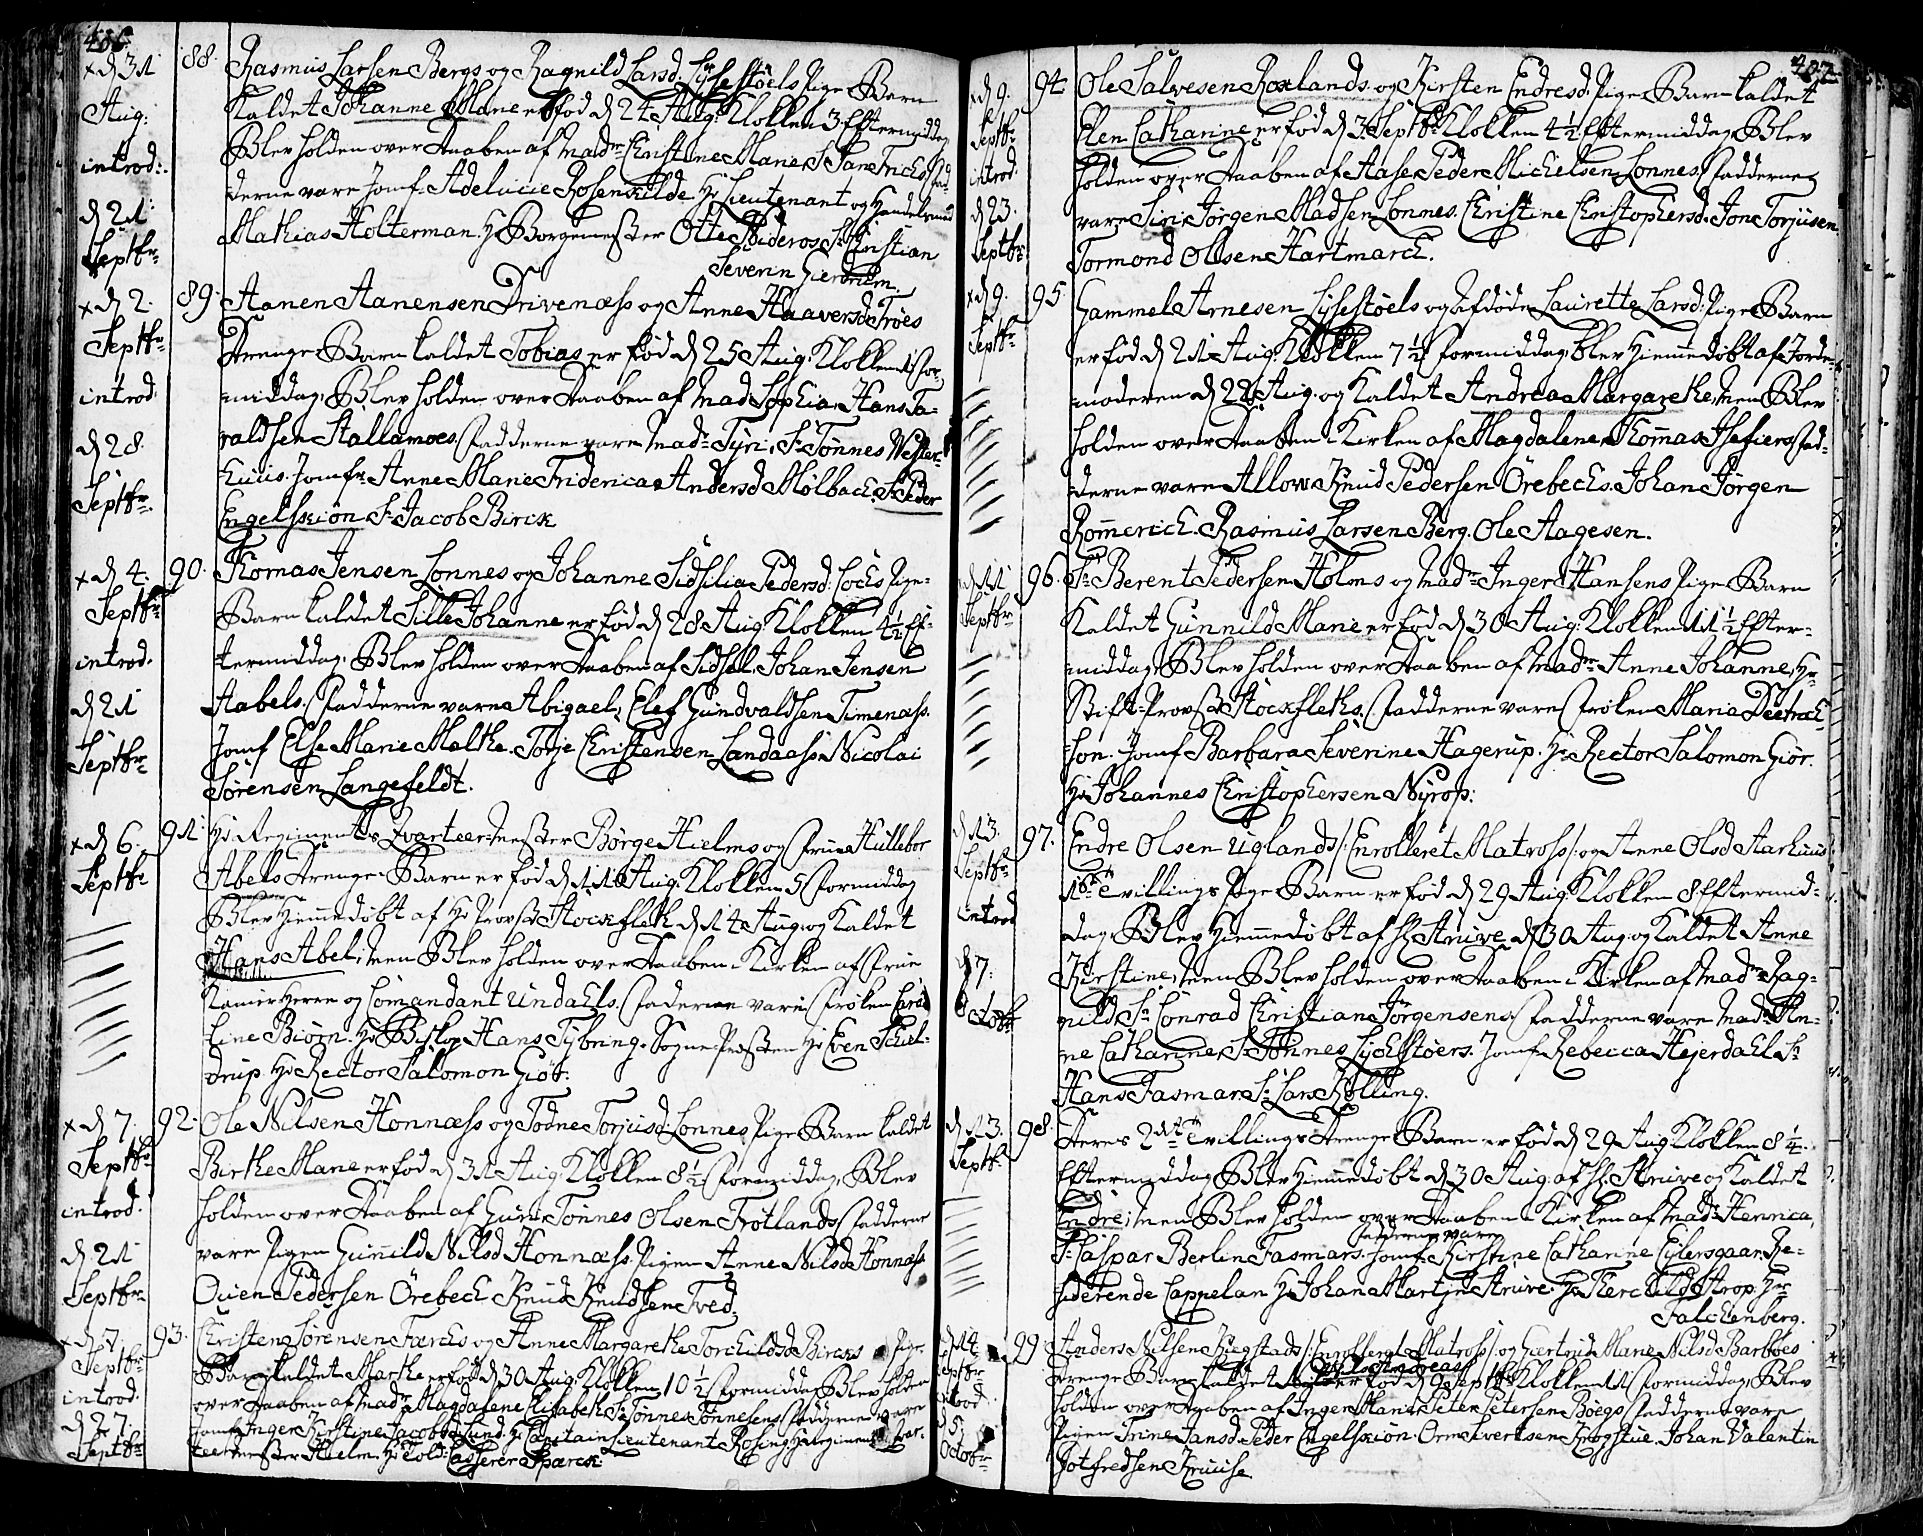 406.
× d 31
Aug:
introd:
d 21
Septbr
88.
Rasmus Larsen Bergs og Ragnild Larsd. Lysestöels Pige Barn
kaldet Johanne Marie er fød d 24 Aug. Klokken 3 Eftermiddag
Blev holden over Daaben af Madr Christine Marie Sr Jans Frichs Fad-
derne vare Jomf. Adelucie Rosenkilde. Hr Lieutenant og Handelsmand
Mathias Holterman. Hr Borgemester Otte Stideros Sr Christian
Severin Gierdrum.
× d 2.
Septbr
introd.
d 28.
Septbr.
89.
Aanen Aanensen Drivenæss og Anne Haaversd Troes
Drenge Barn kaldet Tobias er fød d 25 Aug. Klokken 1 For-
middag, Blev holden over Daaben af Mad Sophia Hans Ta-
raldsen Stallamoes. Fadderne vare Madr Tyri, Sr Tønnes Wester-
huus. Jomfr Anne Marie Friderica Andersd Mølbach. Sr Peder
Engelskiön Sr Jacob Birck
× d 4.
Septbr
introd.
d 21
Septbr
90.
Thomas Jensen Lonnes og Johanne Sidsilia Pedersd: Cocks Pige-
Barn kaldet Sille Johanne er fød d 28 Aug. Klokken 4½ Ef-
termiddag. Blev holden over Daaben af Sidsel Johan Jensen
Aabels. Fadderne vare Abigael, Elef Gundvaldsen Timenæss.
Jomf Else Marie Malthe. Torje Christensen Landaass. Nicolai
Sørensen Langefeldt.
× d 6.
Septbr
91
Hr Regiments Qvarteer-Mester Børge Hielms og Frue Hillebor
Abels Drenge-Barn er fød d 11 Aug. Klokken 5 Formiddag
Blev Hiemmedøbt af Hr Provst Stockfleth d 14 Aug. og kaldet
Hans Abel; Men Blev holden over Daaben i Kirken af Frue
KamerHerre og Comandant Undahls. Fadderne vare Frøken Caro-
line Biörn. Hr Biskop Hans Tybring. Sogne-Præsten Hr Even Schiel-
drup. Hr Rector Salomon Giör.
× d 7.
Septbr
introd.
d 21
Septbr
92.
Ole Nilsen Honnæss og Todne Torjusd Lonnes Pige Barn kaldet
Birthe Marie er fød d 31 Aug. Klokken 8½ Formiddag, Blev
holden over Daaben af Guri Tønnes Olsen Frøtlands Fadderne
vare Pigen Gunnild Nilsd Honnæss. Pigen Anne Nilsd Honnæss
Ouen Pedersen Örebech Knud Knudsen Tved.
× d 7.
Septbr
introd.
d 27.
Septbr
93.
Christen Sørensen Færchs og Anne Margarethe Torchildsd Bircks Pige-
Barn kaldet Marthe er fød d 30 Aug. Klokken 10½ Formiddag Blev holden
over Daaben af Madr Magdalene Elisabeth Sr Tønnes Tønnesens Fadderne vare
Jomfr Inger Kirstine Jacobsd Lund. Hr Capitain Lieutenant Rosing Hr Regiments Qvar-
teermester Hielm. Hr Told-Casserer Sparck
407.
× d 9.
Septbr
introd.
d 23.
Septbr
94
Ole Salvesen Roslands og Kirsten Endresd. Pige Barn kaldet
Elen Catharine er fød d 3 Septbr Klokken 4½ Eftermiddag. Blev
holden over Daaben af Aase Peder Michelsen Lonnes. Fadderne
vare Siri Jørgen Madsen Lonnes. Christine Christophersd. Jon Torjusen
Tormond Olsen Hartmarck.
× d 9.
Septbr
95
Gammel Arnesen Lysestöels og Afdøde Laurette Larsd. Pige Barn
er fød d 21 Aug. Klokken 7½ Formiddag, blev Hiemmedøbt af Jorde-
moderen d 22 Aug. og Kaldet Andrea Margarethe, Men Blev
holden over Daaben i Kirken af Magdalene Thomas Hefiers Fad-
derne vare Allow Knud Pedersen Örebechs. Johan Jørgen
Rommerich. Rasmus Larsen Berg. Ole Aagesen.
d 11
Septbr
96.
Sr Berent Pedersen Holms og Madr Inger Hansens Pige Barn
Kaldet Gunnild Marie er fød d 30 Aug. Klokken 11½ Efter-
middag, Blev holden over Daaben af Madr Anne Johanne, Hr
Stift-Provst Stockfleths. Fadderne vare Frøken Maria Dietrich-
son. Jomf Barbara Severine Hagerup. Hr Rector Salomon Giör.
Hr Johannes Christophersen Nyrop:
d 13.
Septbr
introd
d 7.
Octobr
97.
Endre Olsen Uglands /: Enrolleret Matross :/ og Anne Olsd Aarhuus
1ste Tvillings Pige Barn er fød d 29 Aug. Klokken 8 Eftermid-
dag, Blev Hiemmedøbt af Hr Struve d 30 Aug. og Kaldet Anne
Kirstine, Men Blev holden over Daaben i Kirken af Madr Rag-
nild, Sr Conrad Christian Jørgensens. Fadderne vare Madr An-
ne Catharine Sr Tønnes Lyckstöers. Jomf Rebecca Hejerdahl. Sr
Hans Fasmar. Sr Lars Kølling.
d 13.
Septbr
98.
Deres 2det Tvillings Drenge Barn er fød d 29 Aug Klokken 8¼
Eftermiddag Blev Hiemmedøbt d 30 Aug. af Hr Struve og Kaldet
Endre; Men Blev holden over Daaben i Kirken af Madr Henrica,
Fadderne vare
Sr Caspar Berlin Fasmars. Jomfr Kirstine Catharine Eilersgaar. Re-
siderende Cappelan Hr Johan Martin Struve. Hr Terchild Strop. Hr
Falckenberg.
d 14
Septbr
introd
d 5
Octobr
99
Anders Nilsen Kiegstads /: Enrolleret Matross :/ og Giertrud Marie Nilsd Barboes
Drenge Barn kaldet Nils Andreas er fød d 9 Septbr Klokken 11 Formiddag, Blev
holden over Daaben af Inger Maria Peter Petersen Böegs Fadderne vare
Pigen Trine Jansd. Peder Engelskiön. Orm Evertsen Krogstue. Johan Valentin
Gotfredsen Kruuse